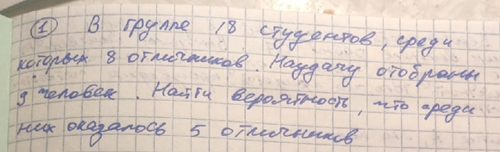 ① В группе 18 студентов, среди
которых 8 отличников. Наудачу отобраны
9 человек. Найти вероятность, что среди
них оказалось 5 отличников